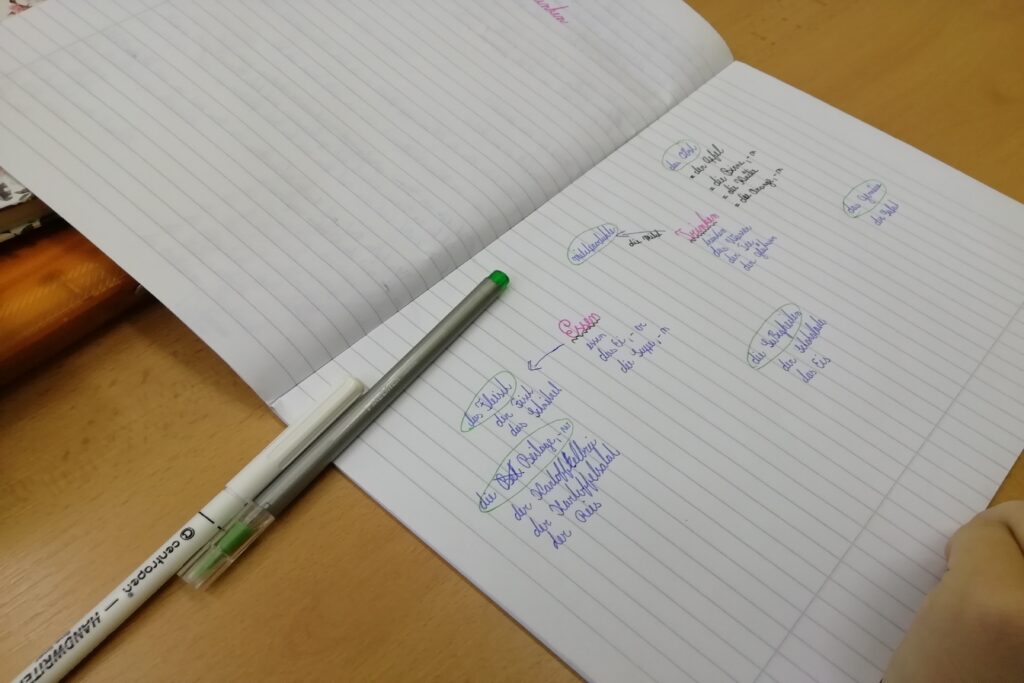 das Obst
= der Apfel
= die Birne, -n
= die
= die Orange, -n
das Gemüse
der Salat
Trinken
trinken
das Wasser
der Tee,
der
die Milch
Milchprodukte
Essen
essen
das Ei, -er
die Suppe, -n
das Fleisch
der Fisch
das Schnitzel
die Beilage, -n
der Kartoffelbrei
der Kartoffelsalat
der Reis
die Süßigkeiten
die Schokolade
das Eis
centropen
HANDWRITER